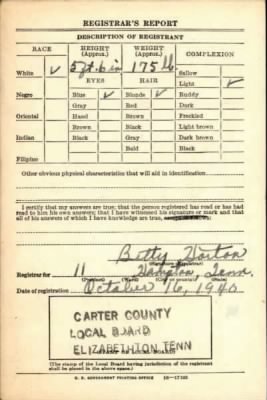 REGISTRAR'S REPORT
DESCRIPTION OF REGISTRANT
RACE HEIGHT (Approx.) WEIGHT (Approx.) COMPLEXION
White ✓ 5 ft. 6 in 175 lb. Sallow
EYES HAIR Light ✓
Negro Blue ✓ Blonde ✓ Ruddy
Gray Red Dark
Oriental Hazel Brown Freckled
Brown Black Light brown
Indian Black Gray Dark brown
Bald Black
Filipino
Other obvious physical characteristics that will aid in identification
I certify that my answers are true; that the person registered has read or has had
read to him his own answers; that I have witnessed his signature or mark and that
all of his answers of which I have knowledge are true,
Betty Horton
Registrar for 11 Hampton, Tenn.
Date of registration October 16, 1940
CARTER COUNTY
LOCAL BOARD
ELIZABETHTON TENN
(The stamp of the Local Board having jurisdiction of the registrant
shall be placed in the above space.)
U. S. GOVERNMENT PRINTING OFFICE 16-17105